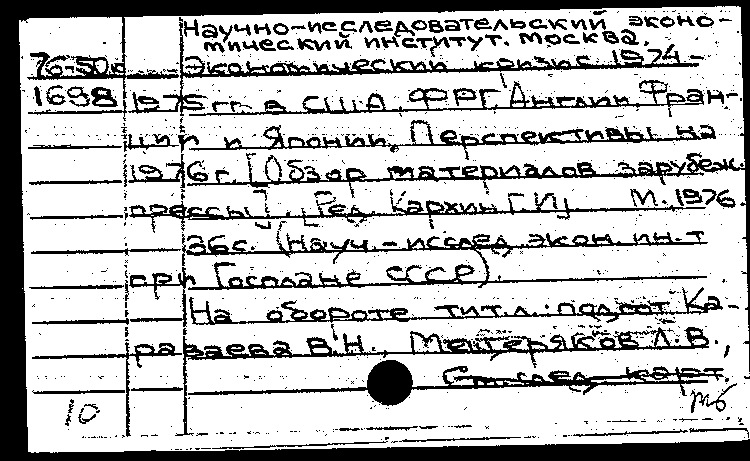 Научно-исследовательский эконо-
мический институт. Москва.
76-50к Экономический кризис 1974-
1698 1975 гг. в США, ФРГ, Англии, Фран-
ции и Японии. Перспективы на
1976 г. [Обзор материалов зарубеж.
прессы]. Ред. Кархин Г.И. М., 1976.
36с. (Науч.-исслед. экон. ин-т
при Госплане СССР).
На обороте тит.л.: подгот. Ка-
раваева В.Н., Мещеряков Л.В.,
См. след. карт.
10